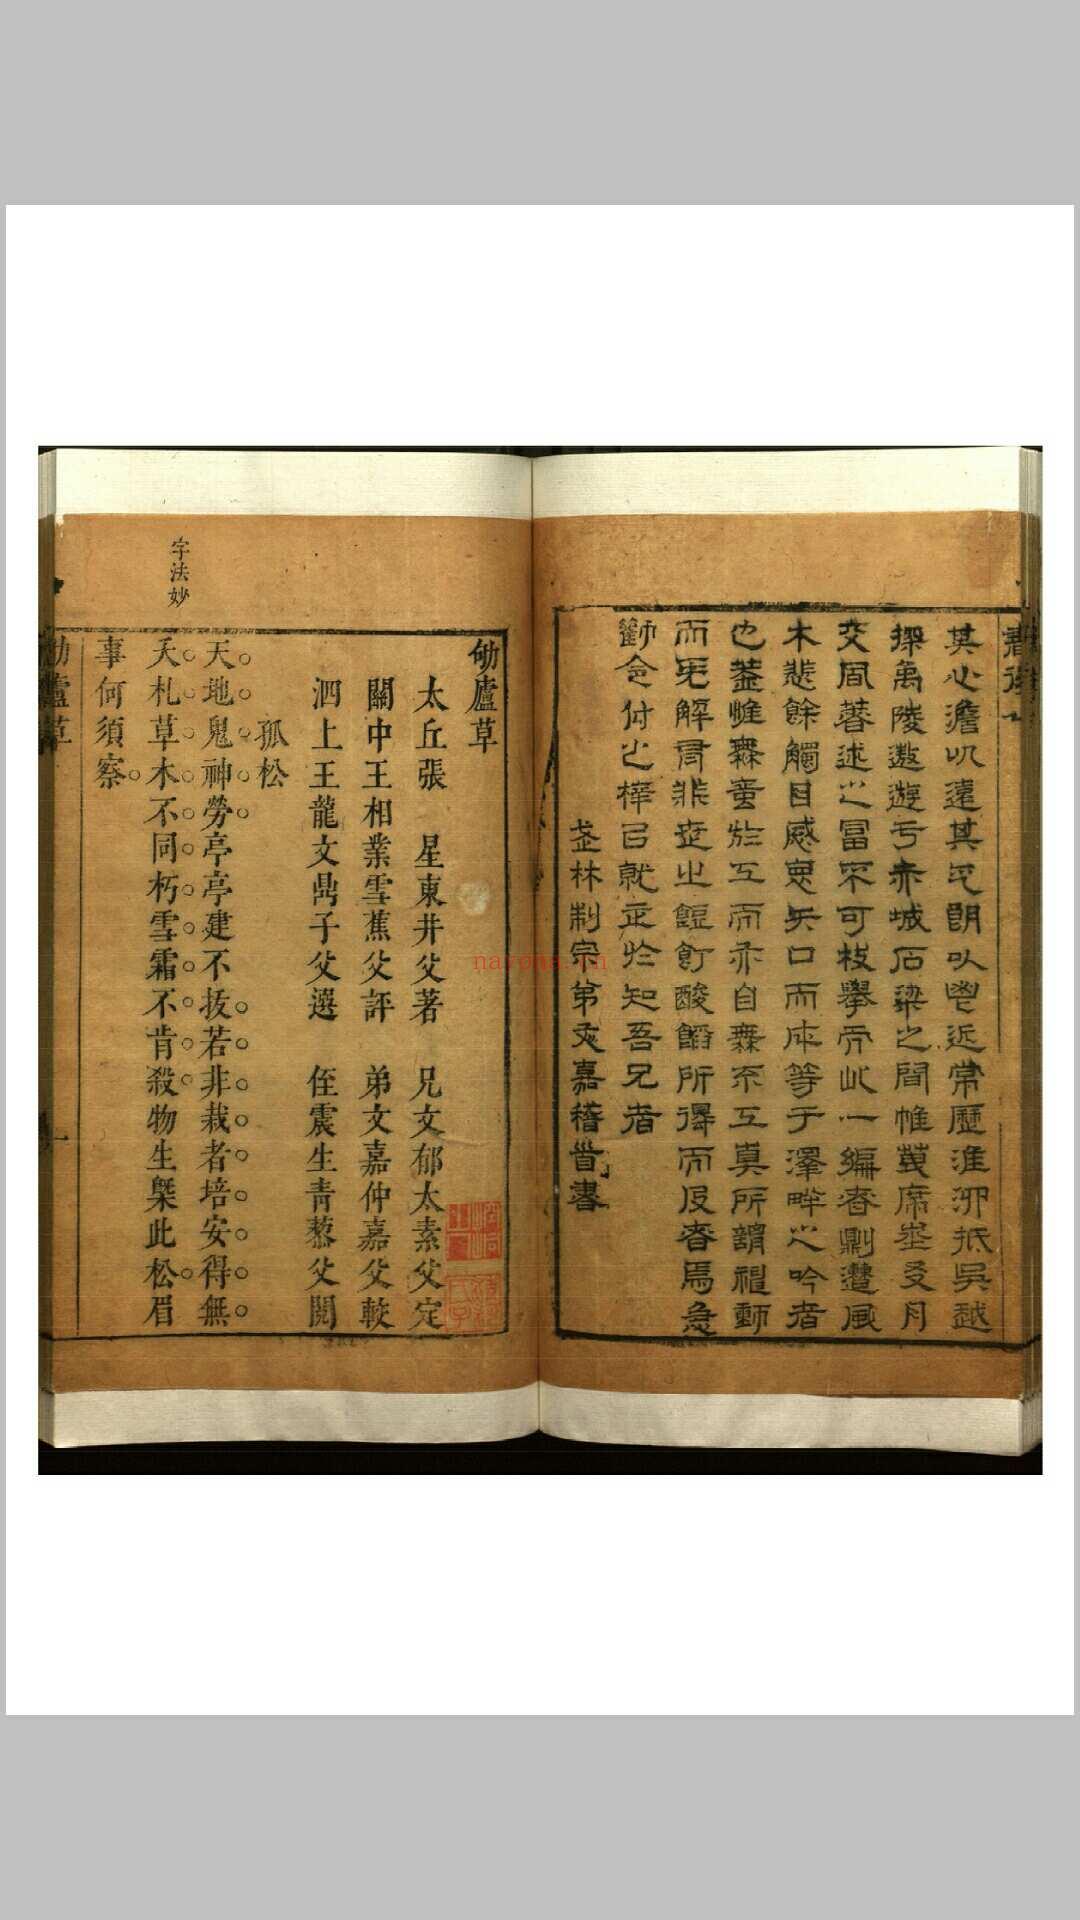 其心澹以遠其氣朗以鬯近常歷淮泗抵吳越
探禹陵遨遊乎赤城石梁之間帷萬席坐受月
交周著述之冨不可枚舉而此一編者則遭風
木悲餘觸目感思矢口而成等于澤畔之吟者
也葢惟無意於工而亦自無不工真所謂禮動
而兕解者非世之餖飣酸餡所得而及者焉急
令付之梓已就正於知吾兄者
盋林制宗弟文嘉稽首書
劬廬草
太丘張 星東井父著 兄文郁太素父定
關中王相業雪蕉父評 弟文嘉仲嘉父較
泗上王龍文鼎子父選 侄震生青藜父閱
孤松
天地鬼神勞亭亭建不拔若非栽者培安得無
夭札草木不同朽雪霜不肯殺物生槩此松眉
事何須察
字法妙
劬廬草
一
nayona.cn